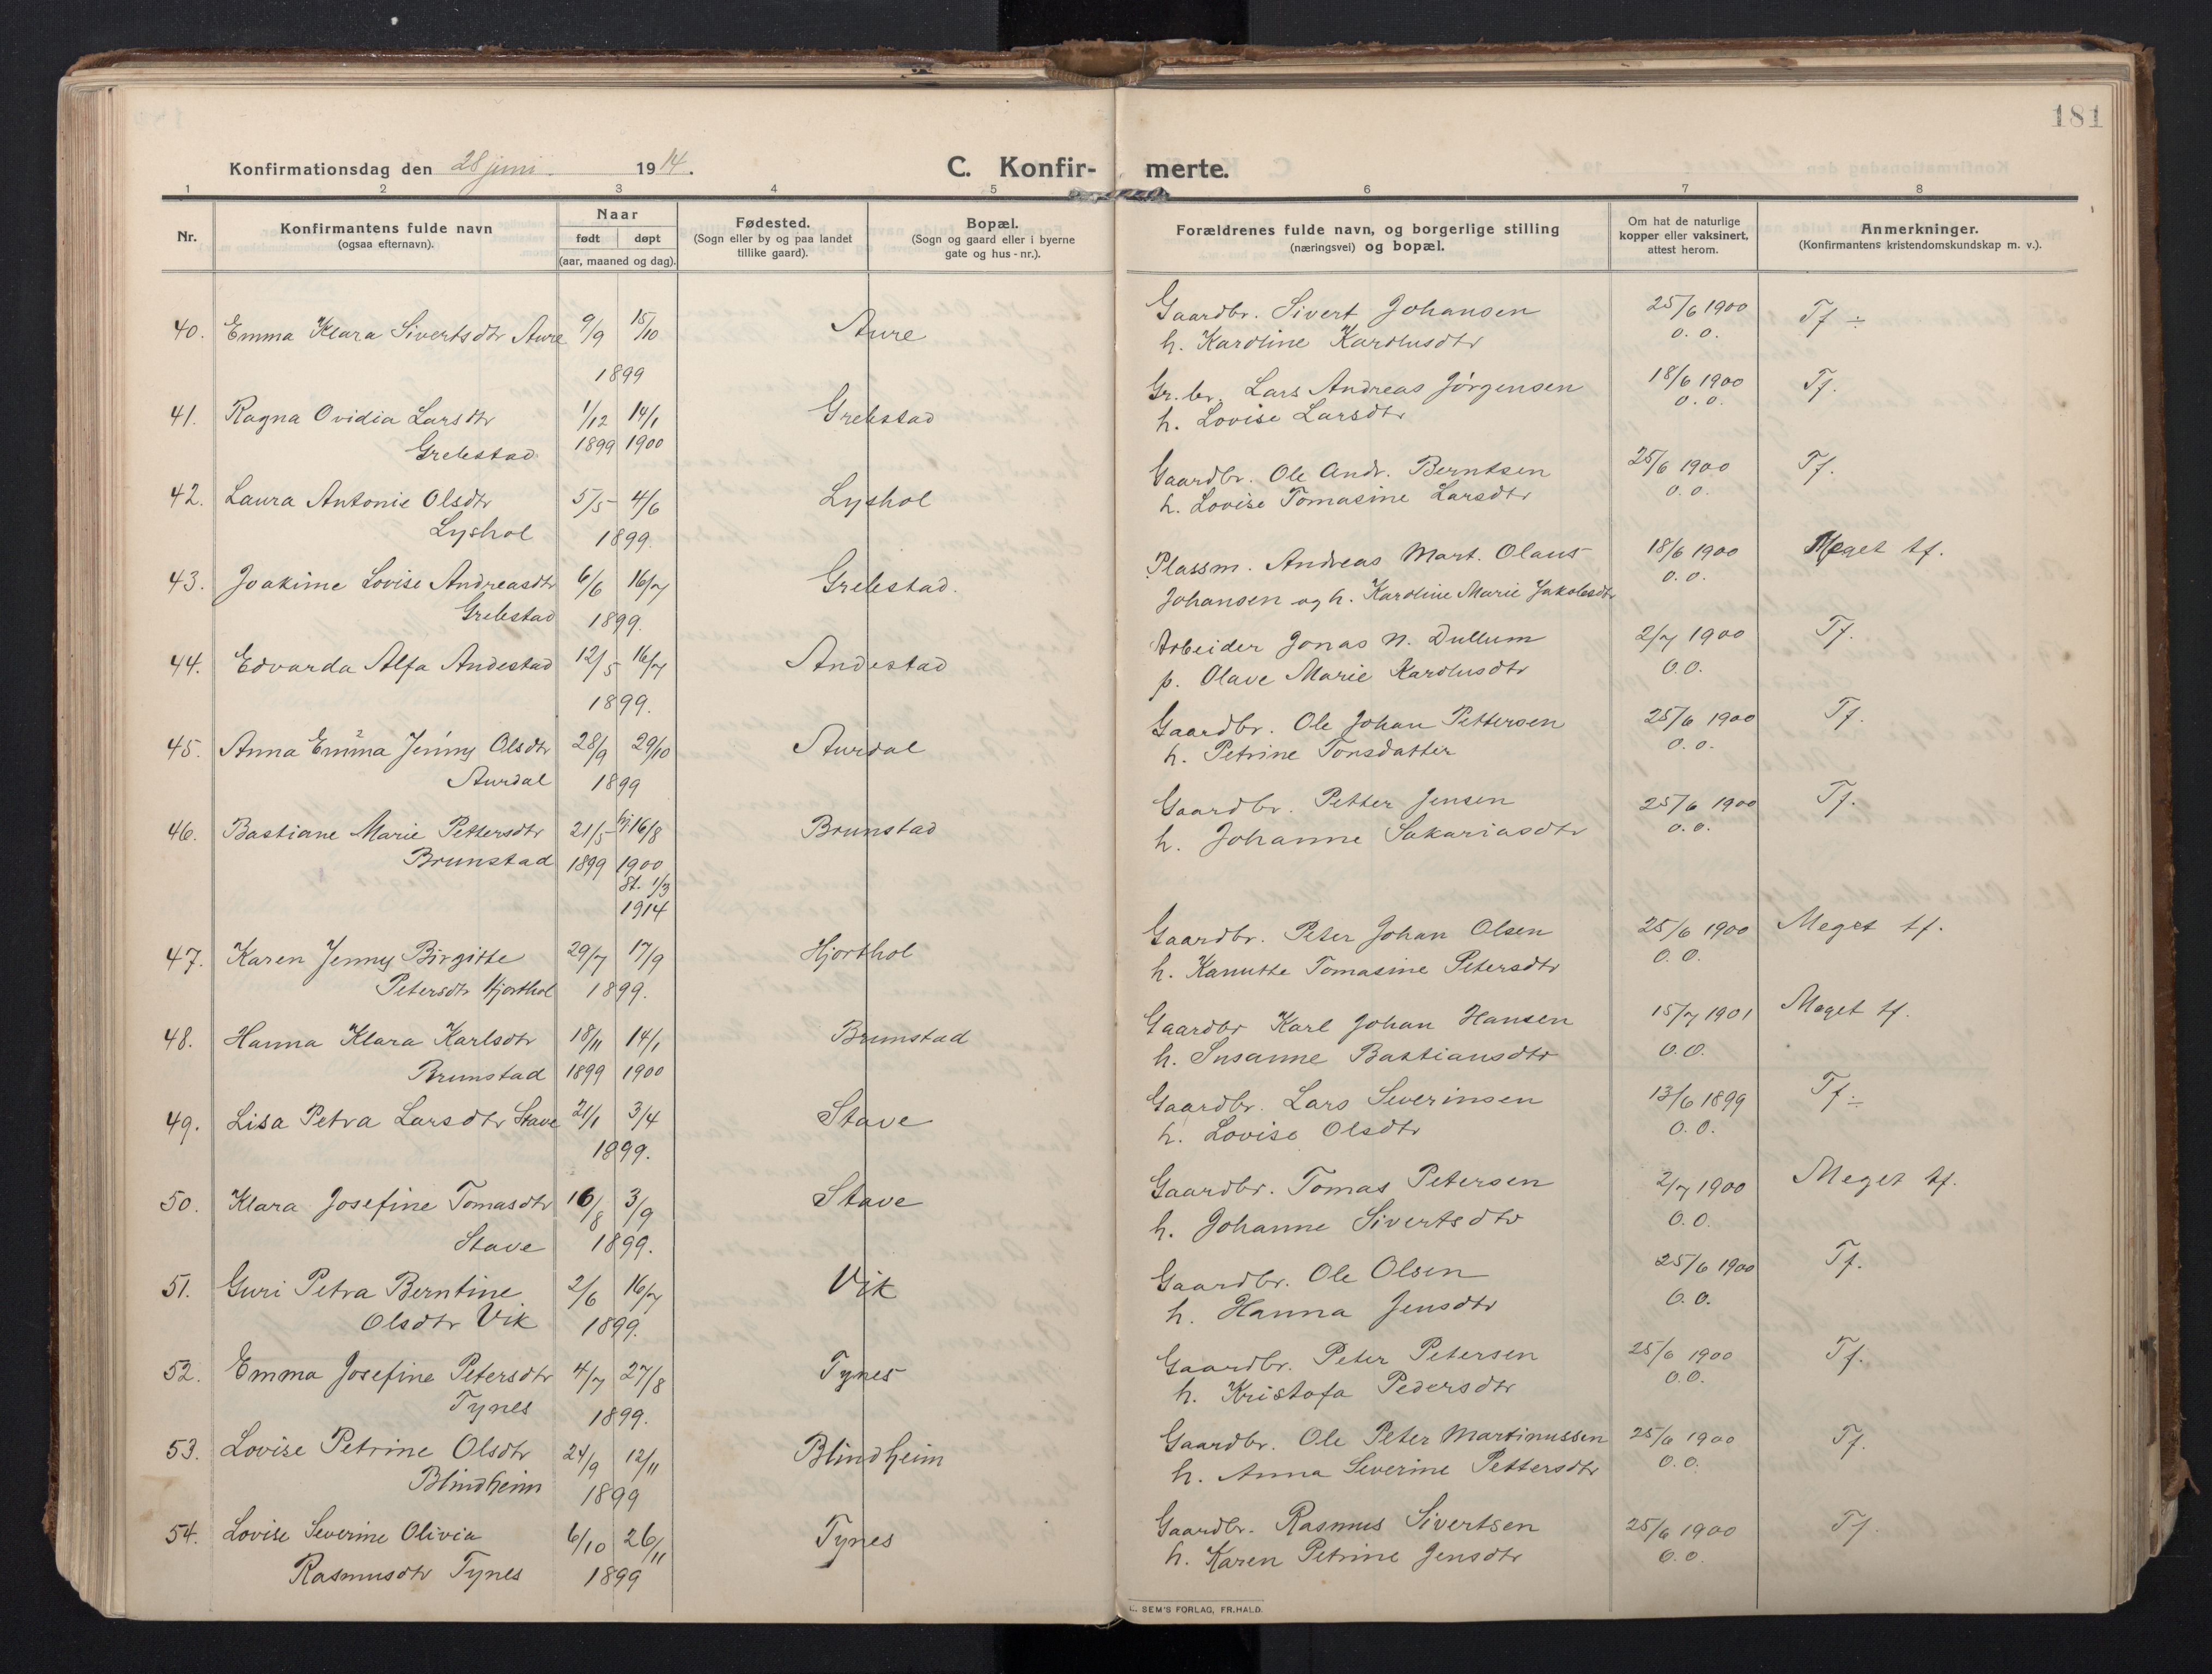 181
Konfirmationsdag den 28 juni 1914.
C. Konfir- merte.
1 2 3 4 5 6 7 8
Nr.
Konfirmantens fulde navn
(ogsaa efternavn).
Naar
født døpt
(aar, maaned og dag).
Fødested.
(Sogn eller by og paa landet
tillike gaard).
Bopæl.
(Sogn og gaard eller i byerne
gate og hus-nr.).
Forældrenes fulde navn, og borgerlige stilling
(næringsvei) og bopæl.
Om hat de naturlige
kopper eller vaksinert,
attest herom.
Anmerkninger.
(Konfirmantens kristendomskundskap m. v.).
40. Emma Klara Sivertsdtr Aure 9/9 15/10 Aure
1899
Gaardbr. Sivert Johansen 25/6 1900 Tf ÷
h. Karoline Karolusdtr O. O.
41. Ragna Ovidia Larsdtr 1/12 14/1 Grebstad
Grebstad 1899 1900
Gr. br. Lars Andreas Jørgensen 18/6 1900 Tf.
h. Lovise Larsdtr O. O.
42. Laura Antonie Olsdtr 5/5 4/6 Lyshol
Lyshol 1899.
Gaardbr. Ole Andr. Berntsen 25/6 1900 Tf.
h. Lovise Tomasine Larsdtr O. O.
43. Joakime Lovise Andreasdtr 6/6 16/7 Grebstad.
Grebstad 1899.
Plassm. Andreas Mart. Olaus 18/6 1900 Meget tf.
Johansen og h. Karoline Marie Jakobsdtr O. O.
44. Edvarda Alfa Andestad 12/5 16/7 Andestad
1899.
Arbeider Jonas N. Dullum 2/7 1900 Tf.
p. Olave Marie Karolusdtr O. O.
45. Anna Emma Jenny Olsdtr 28/9 29/10 Aurdal
Aurdal 1899
Gaardbr. Ole Johan Pettersen 25/6 1900 Tf.
h. Petrine Tonsdatter O. O.
46. Bastiane Marie Pettersdtr 21/5 hj 16/8 Brunstad
Brunstad 1899 1900
St. 1/3
1914
Gaardbr. Petter Jensen 25/6 1900 Tf.
h. Johanne Sakariasdtr O. O.
47. Karen Jenny Birgitte 29/7 17/9 Hjorthol
Petersdtr Hjorthol 1899.
Gaardbr. Peter Johan Olsen 25/6 1900 Meget tf.
h. Kanutte Tomasine Petersdtr O. O.
48. Hanna Klara Karlsdtr 18/11 14/1 Brunstad
Brunstad 1899 1900
Gaardbr Karl Johan Hansen 15/7 1901 Meget tf.
h. Susanne Bastiansdtr O. O.
49. Lisa Petra Larsdtr Stave 21/1 3/4 Stave
1899.
Gaardbr. Lars Severinsen 13/6 1899 Tf. ÷
h. Lovise Olsdtr O. O.
50. Klara Josefine Tomasdtr 16/8 3/9 Stave
Stave 1899.
Gaardbr. Tomas Petersen 2/7 1900 Meget tf.
h. Johanne Sivertsdtr O. O.
51. Guri Petra Berntine 2/6 16/7 Vik
Olsdtr Vik 1899.
Gaardbr. Ole Olsen 25/6 1900 Tf.
h. Hanna Jensdtr O. O.
52. Emma Josefine Petersdtr 4/7 27/8 Tynes
Tynes 1899.
Gaardbr. Peter Petersen 25/6 1900 Tf.
h. Kristofa Pedersdtr O. O.
53. Lovise Petrine Olsdtr 24/9 12/11 Blindheim
Blindheim 1899
Gaardbr. Ole Peter Martinussen 25/6 1900 Tf.
h. Anna Severine Pettersdtr O. O.
54. Lovise Severine Olivia 6/10 26/11 Tynes
Rasmusdtr Tynes 1899
Gaardbr. Rasmus Sivertsen 25/6 1900 Tf.
h. Karen Petrine Jensdtr O. O.
L. SEM'S FORLAG, FR.HALD.